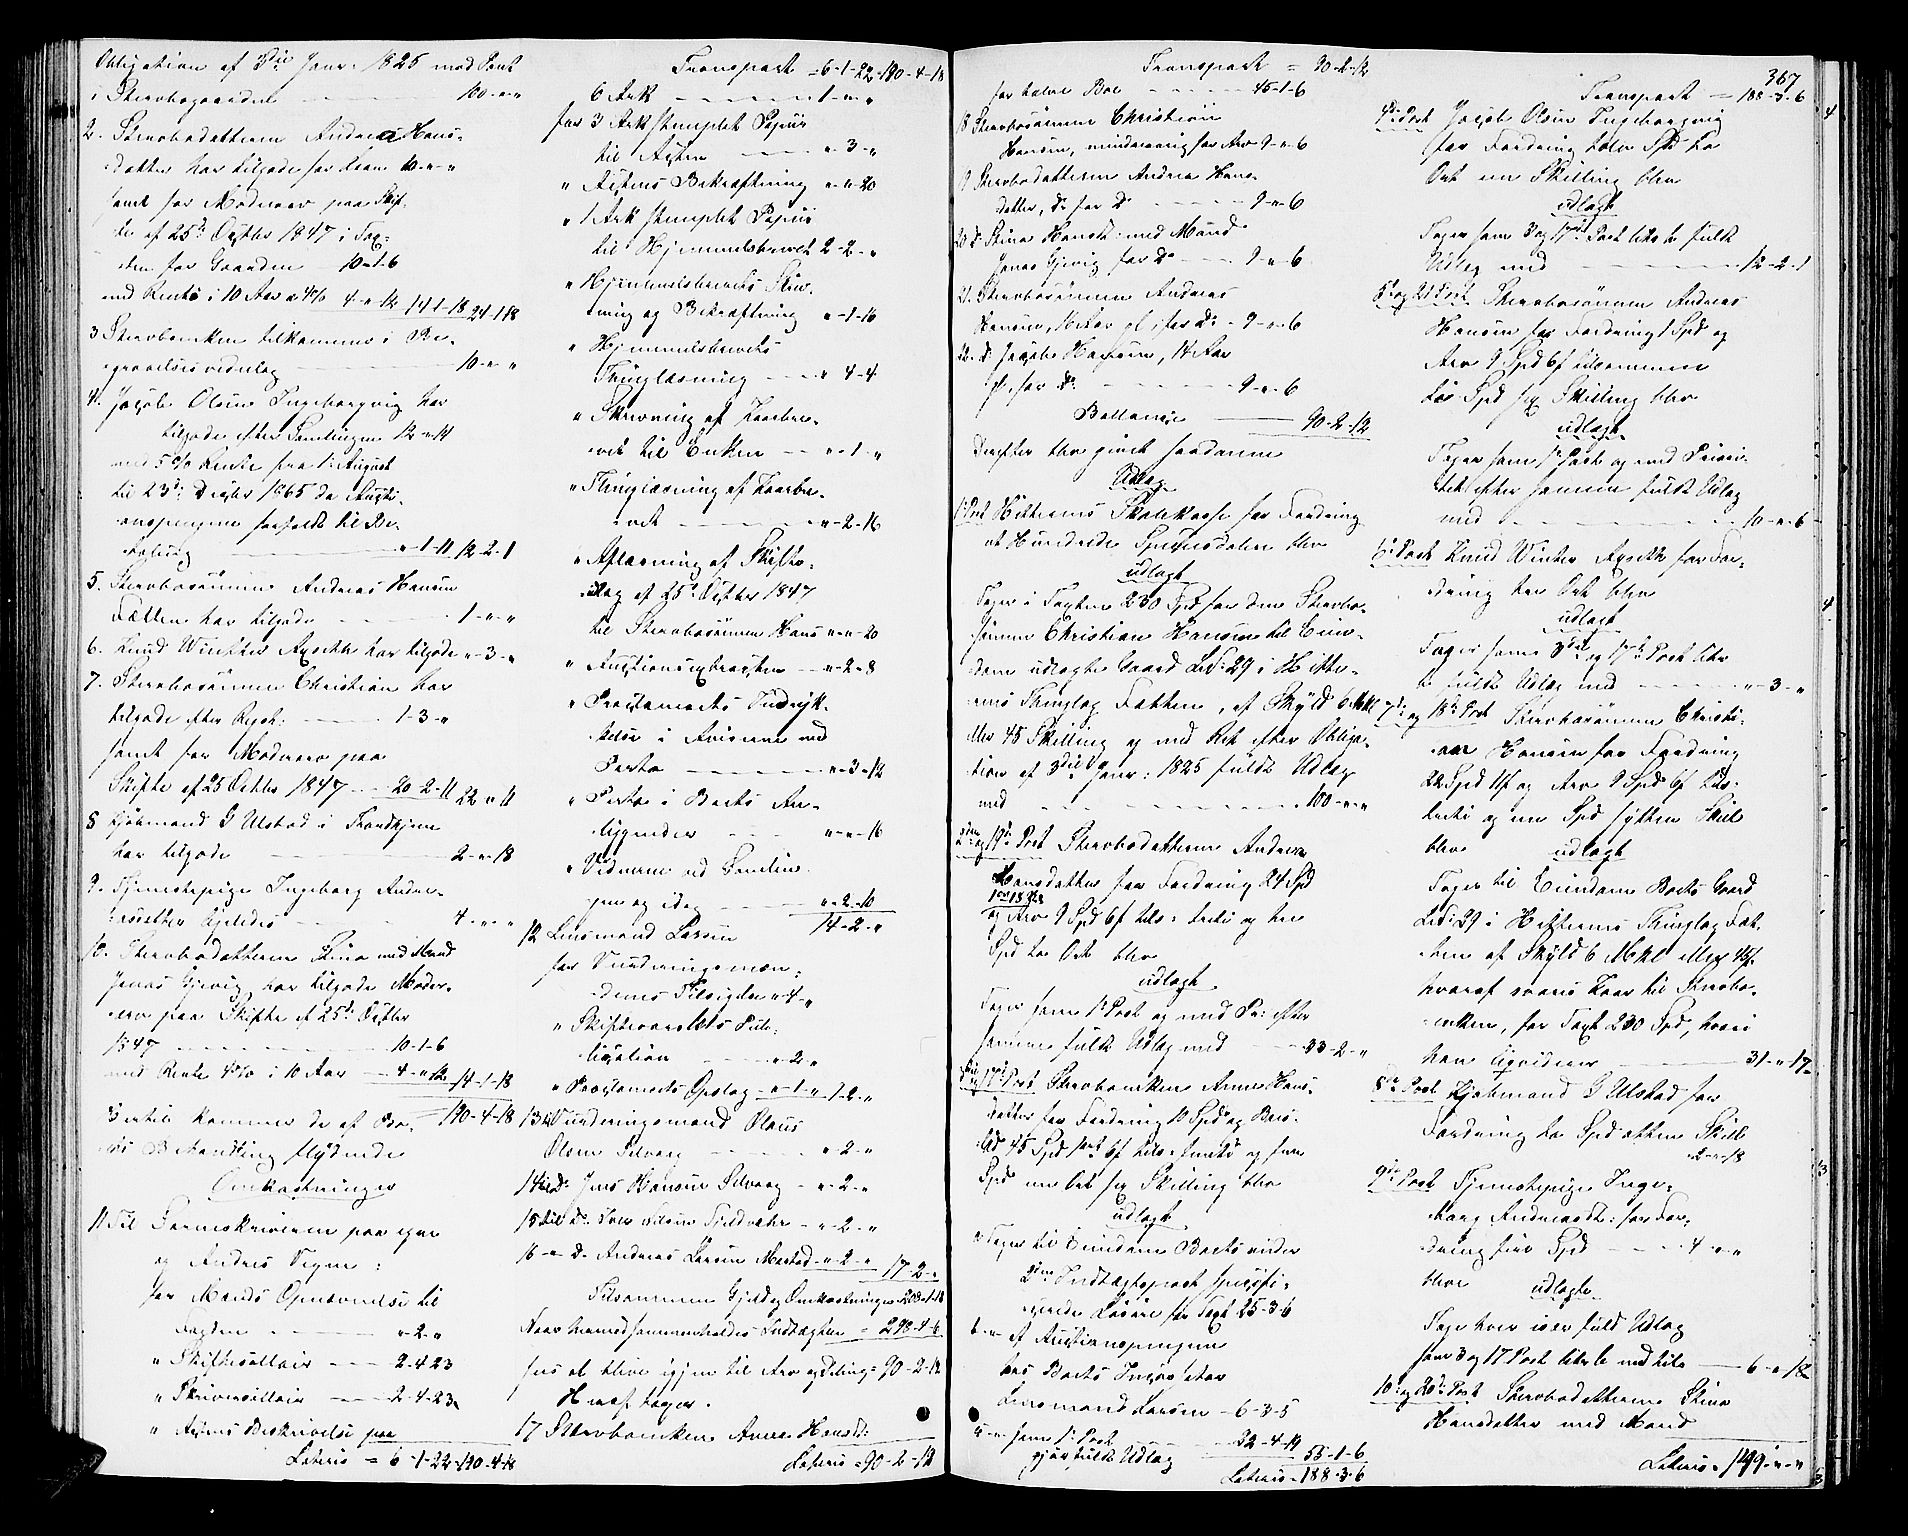 Obligation af 3die Janr: 1825 med Pant
i Stervbogaarden 100-"-"
2. Stervbodatteren Andrea Hans-
datter har tilgode for Leen 10-"-"
samt for Mødrearv paa Skif-
te af 25de Octbr 1847 i Tax-
ten for Gaarden 10-1-6
med Rente i 10 Aar a 4% 4-"-12 14-1-18 24-1-18
3 Stervboenken tilkommer i Be-
gravelsesvederlag 10-"-"
4. Jacob Olsen Ingeborgvig har
tilgode efter Samlingen 12-"-14
med 5% Rente fra 1. August
til 23de Decbr 1865 da Aucti-
onspengene forfaldt til Be-
taling "-1-11 12-2-1
5. Stervbosønnen Andreas Hansen
Fætten har tilgode 1-"-"
6. Knud Winther Axseth har tilgode "-3-"
7. Stervbosønnen Christian har
tilgode efter Regn: 1-3-"
samt for Mødrearv paa
Skifte af 25 Octbr 1847 20-2-11 22-"-11
8 Kjøbmand G Ulstad i Trondhjem
har tilgode 2-"-18
9. Tjenestepige Ingeborg Andre-
asdatter 4-"-"
10. Stervbodatteren Stina med Mand
Jonas Gjevig har tilgode Møder-
arv paa Skifte af 25de Octbr
1847 10-1-6
med Rente 4% i 10 Aar 4-"-12 14-1-18
= 190-4-18
Hertil kommer de af Bo-
ets Behandling flydende
Omkostninger
11 Til Sorenskriveren paa egne
og Andres Vegne:
for Maads Opnævnelse til
Fogden "-2-"
" Skiftesallair 2-4-23
" Skriversallair 2-4-23
" Actens Beskrivelse paa
Lateris = 6-1-22-190-4-18
Transport = 6-1-22-190-4-18
6 Ark 1-"-"
for 3 Ark stemplet Papiir
til Acten "-3-"
" Actens Bekræftning "-"-20
" 1 Ark stemplet Papiir
til Hjemmelsbrevet 2-2-"
" Hjemmelsbrevets Skriv-
ning og Bekræftning "-1-16
" Hjemmelsbrevets
Thinglæsning "-4-4
" Skrivning af Kaarbre-
vet til Enken "-1-"
" Thinglæsning af Kaarbre-
vet "-2-16
" Aflæsning af Skifte-
udlæg af 25de Octbr 1847
til Stervbosønnen Hans "-"-20
" Auctionsextracten "-2-8
" Proclamaets Indryk-
kelse i Aviserne med
Porto "-3-12
" Porto i Boets An-
liggender "-"-16
" Vidnerne ved Samlin-
gen og idag "-2-10
14-2-"
12 Lensmand Larsen
for Vurderingsmæn-
denes Tilsigelse "-4-"
" Skiftevarslets Pub-
lication "-2-"
" Proclamaets Opslag "-1-" 1-2-"
13 til Vurderingsmand Olaus
Olsen Selvaag "-2-"
14 til do. Jens Hansen Selvaag "-2-"
15 til do. Iver Nilsen Fjeldværø "-2-"
16 " do. Andreas Larsen Mastad "-2-" 17-2-"
Tilsammen Gjeld og Omkostninger = 208-1-18
Naar hermed sammenholdes Indtægten = 298-4-6
sees at blive igjen til Arv og Deling = 90-2-12
Heraf tager.
17 Stervboenken Anne Hansdt:
Lateris = 90-2-12
Transport = 90-2-12
for halve Boe 45-1-6
18 Stervbosønnen Christian
Hansen, mindreaarig for Arv 9-"-6
19 Stervbodatteren Andrea Hans-
datter, do for do 9-"-6
20 do Stina Hansdt: med Mand
Jonas Gjevig for do 9-"-6
21. Stervbosønnen Andreas
Hansen, 16 Aar gl., for do 9-"-6
22. do Jacob Hansen, 14 Aar
gl., for do: 9-"-6
Ballance 90-2-12
Derefter blev givet saadanne
Udlæg
1 Post Hitterens Skolekasse for Fordring
et Hundrede Speciesdaler blev
udlagt
Tager i Taxten 230 Spd for den Stervbo-
sønnen Christian Hansen til Eien-
dom udlagte Gaard Lno: 29 i Hitte-
rens Thinglag Fætten, af Skyld 6 Mkl
eller 45 Skilling og med Ret efter Obliga-
tion af 3die Janr: 1825 fuldt Udlæg
med 100-"-"
2den og 19de Post Stervbodatteren Andrea
Hansdatter for Fordring 24 Spd
1 ort 18 sk
og Arv 9 Spd 6f tils: tredive og tre
Spd to Ort blev
udlagt
Tager som 1 Post og med Pr: efter
samme fuldt Udlæg med 33-2-"
3die og 17de Post Stervboenken Anne Hans-
datter for Fordring 10 Spd og Boes-
lod 45 Spd 1 ort 6f tils: femti og fem
Spd een Ort sex Skilling blev
udlagt
" Tager til Eiendom Boets under
2den Indtægtspost specifi-
cerede Løsøre for Taxt 25-3-6
b. " af Auctionspengene
hos Boets Incassator
Lensmand Larsen 6-3-5
c " som 1. Post 22-4-19
gjør fuldt Udlæg 55-1-6
Lateris = 188-3-6
367
Transport = 188-3-6
4de Post Jacob Olsen Ingeborgvig
for Fordring tolv Spd to
Ort en Skilling blev
udlagt
Tager som 3 og 17de Post litr b fuldt
Udlæg med 12-2-1
5te og 21 Post Stervbosønnen Andreas
Hansen for Fordring 1 Spd og
Arv 9 Spd 6f tilsammen
tie Spd sex Skilling blev
udlagt
Tager som 1 Post og med Priori-
tet efter samme fuldt Udlæg
med 10-"-6
6te Post Knud Winther Axseth for For-
dring tre Ort blev
udlagt
Tager som 3die og 17de Post litr
b. fuldt Udlæg med "-3-"
7de og 18de Post Stervbosønnen Christi-
an Hansen for Fordring
22 Spd 11f og Arv 9 Spd 6f tils:
tredive og een Spd sytten Skill
blev udlagt
Tager til Eiendom Boets Gaard
Lno: 29 i Hitterens Thinglag Fæt-
ten af Skyld 6 Mkl eller 45f.
hvoraf svares Kaar til Stervbo-
enken, for Taxt 230 Spd, hvori
han liqviderer 31-"-17
8de Post Kjøbmand G Ulstad for
Fordring to Spd atten Skill
2-"-18
9de Post Tjenestepige Inge-
borg Andreasdt: for For-
dring fire Spd 4-"-"
blev udlagt
Tager hver især fuld Udlæg
som 3 og 17 Post litr b med tils 6-"-18
10de og 20de Post Stervbodatteren Stina
Hansdatter med Mand
Lateris = 199-"-"